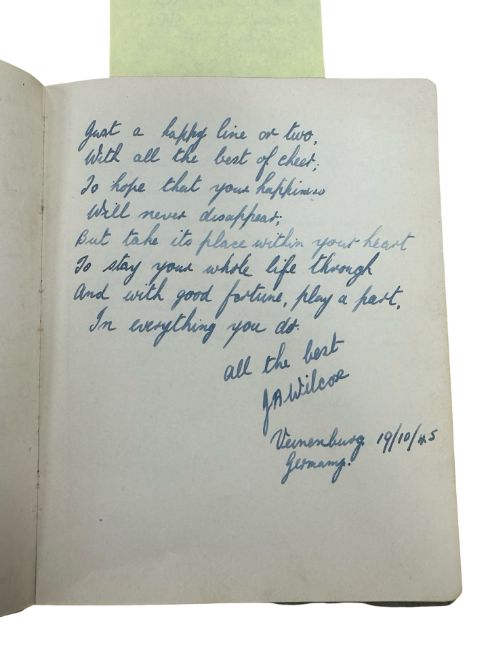 Just a happy line or two,
With all the best of cheer;
To hope that your happiness
Will never disappear;
But take its place within your heart
To stay your whole life through
And with good fortune, play a part,
In everything you do.
all the best
JAWilcox
Veinenburg 19/10/45
Germany.